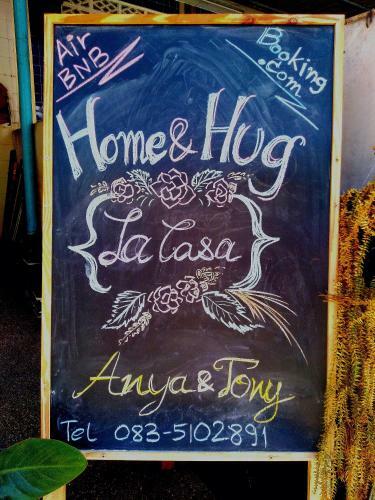 Air
BNB
Booking
.com
Home & Hug
La Casa
Anya & Tony
Tel 083-5102891